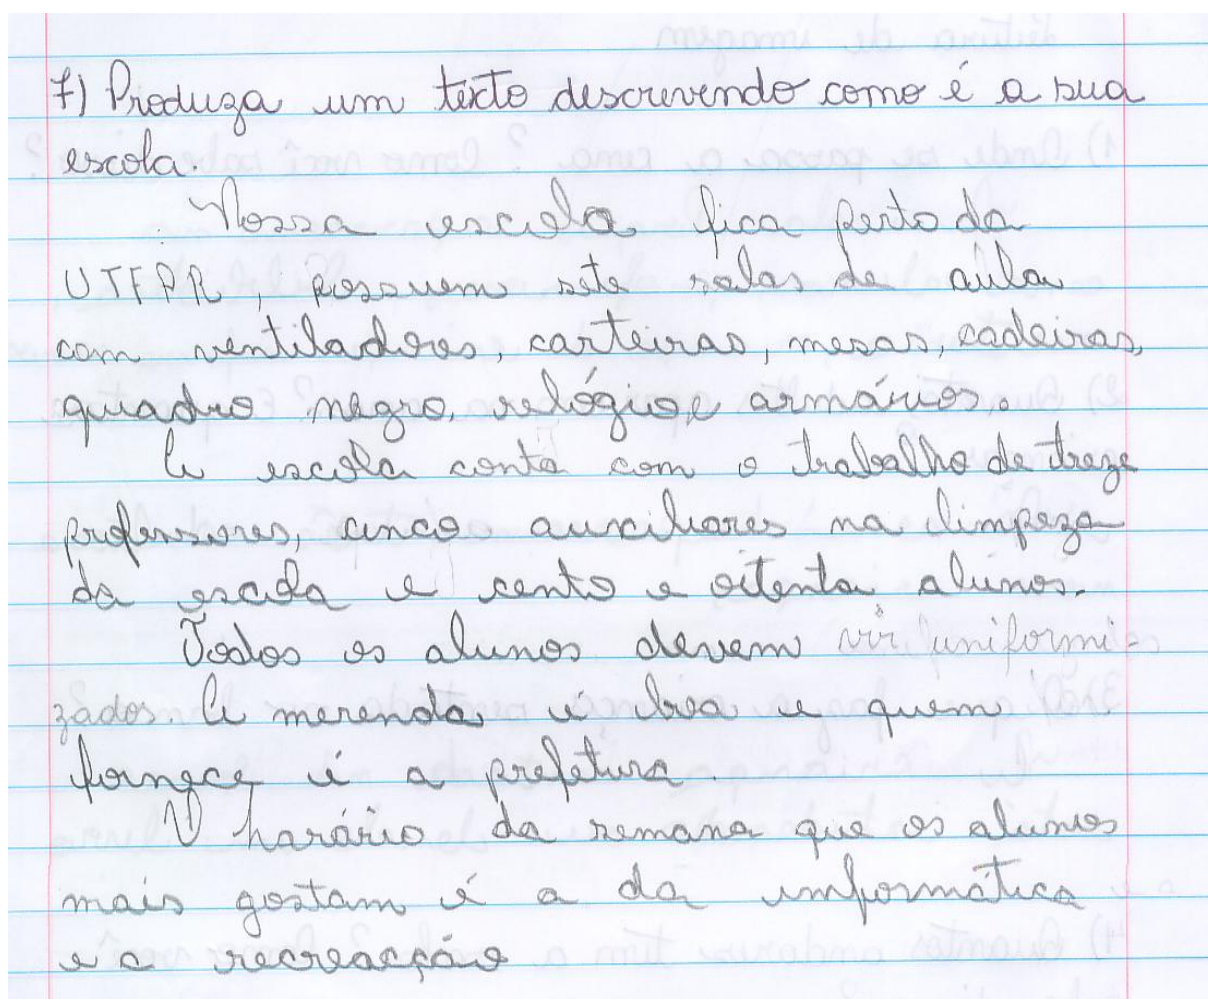 7) Produza um texto descrevendo como é a sua
escola.
Nossa escola fica perto da
UTFPR, possuem sete salas de aula
com ventiladores, carteiras, mesas, cadeiras,
quadro negro, relógio e armários.
A escola conta com o trabalho de treze
professores, cinco auxiliares na limpeza
da escola e cento e oitenta alunos.
Todos os alunos devem vir uniformi-
zados. A merenda é boa e quem
fornece é a prefetura.
O harário da semana que os alunos
mais gostam é a da informática
e a recreacção